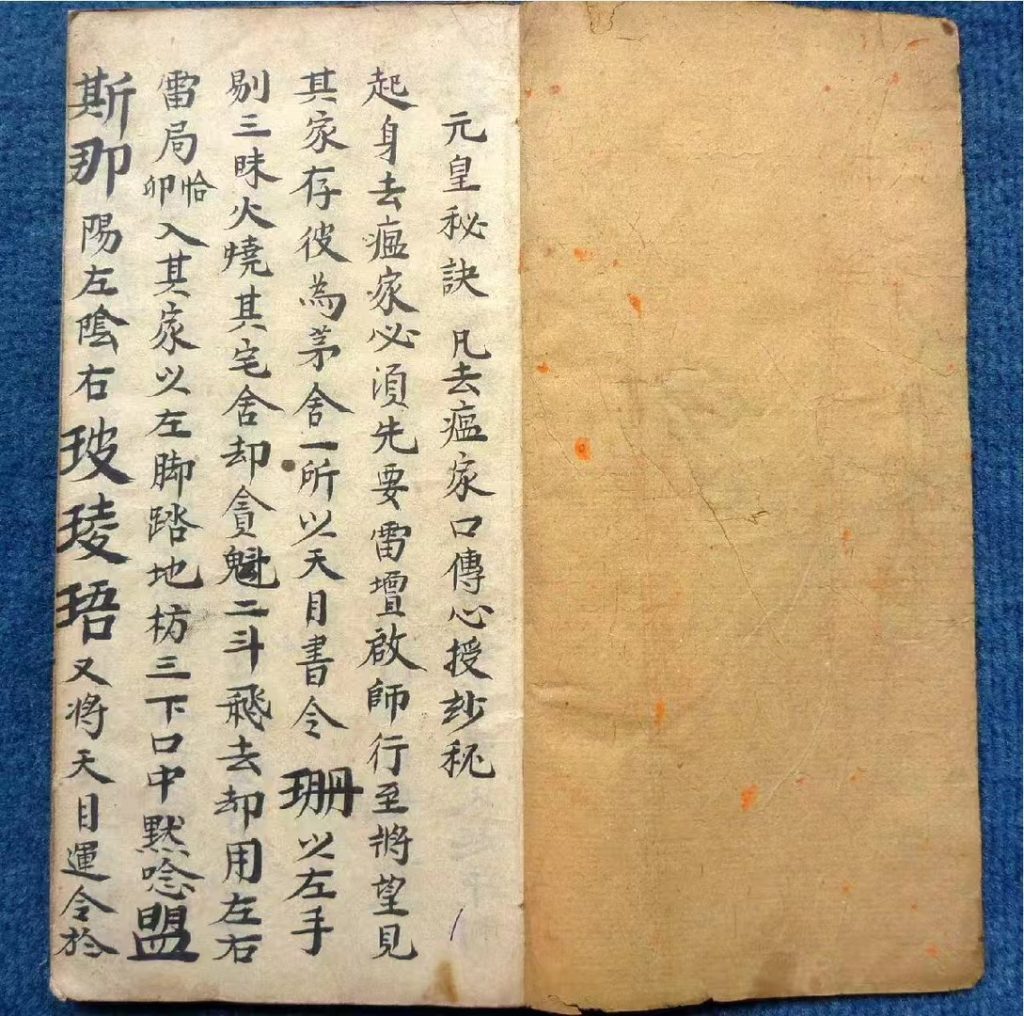 元皇秘訣 凡去瘟家口傳心授玅秘
起身去瘟家必須先要雷壇啟師行至將望見
其家存彼為茅舍一所以天目書令珊以左手
剔三昧火燒其宅舍却貪魁二斗飛去却用左右
雷局恰卯入其家以左脚踏地枋三下口中默唸盟
斯那陽左陰右玻㻏珸又將天目運令於